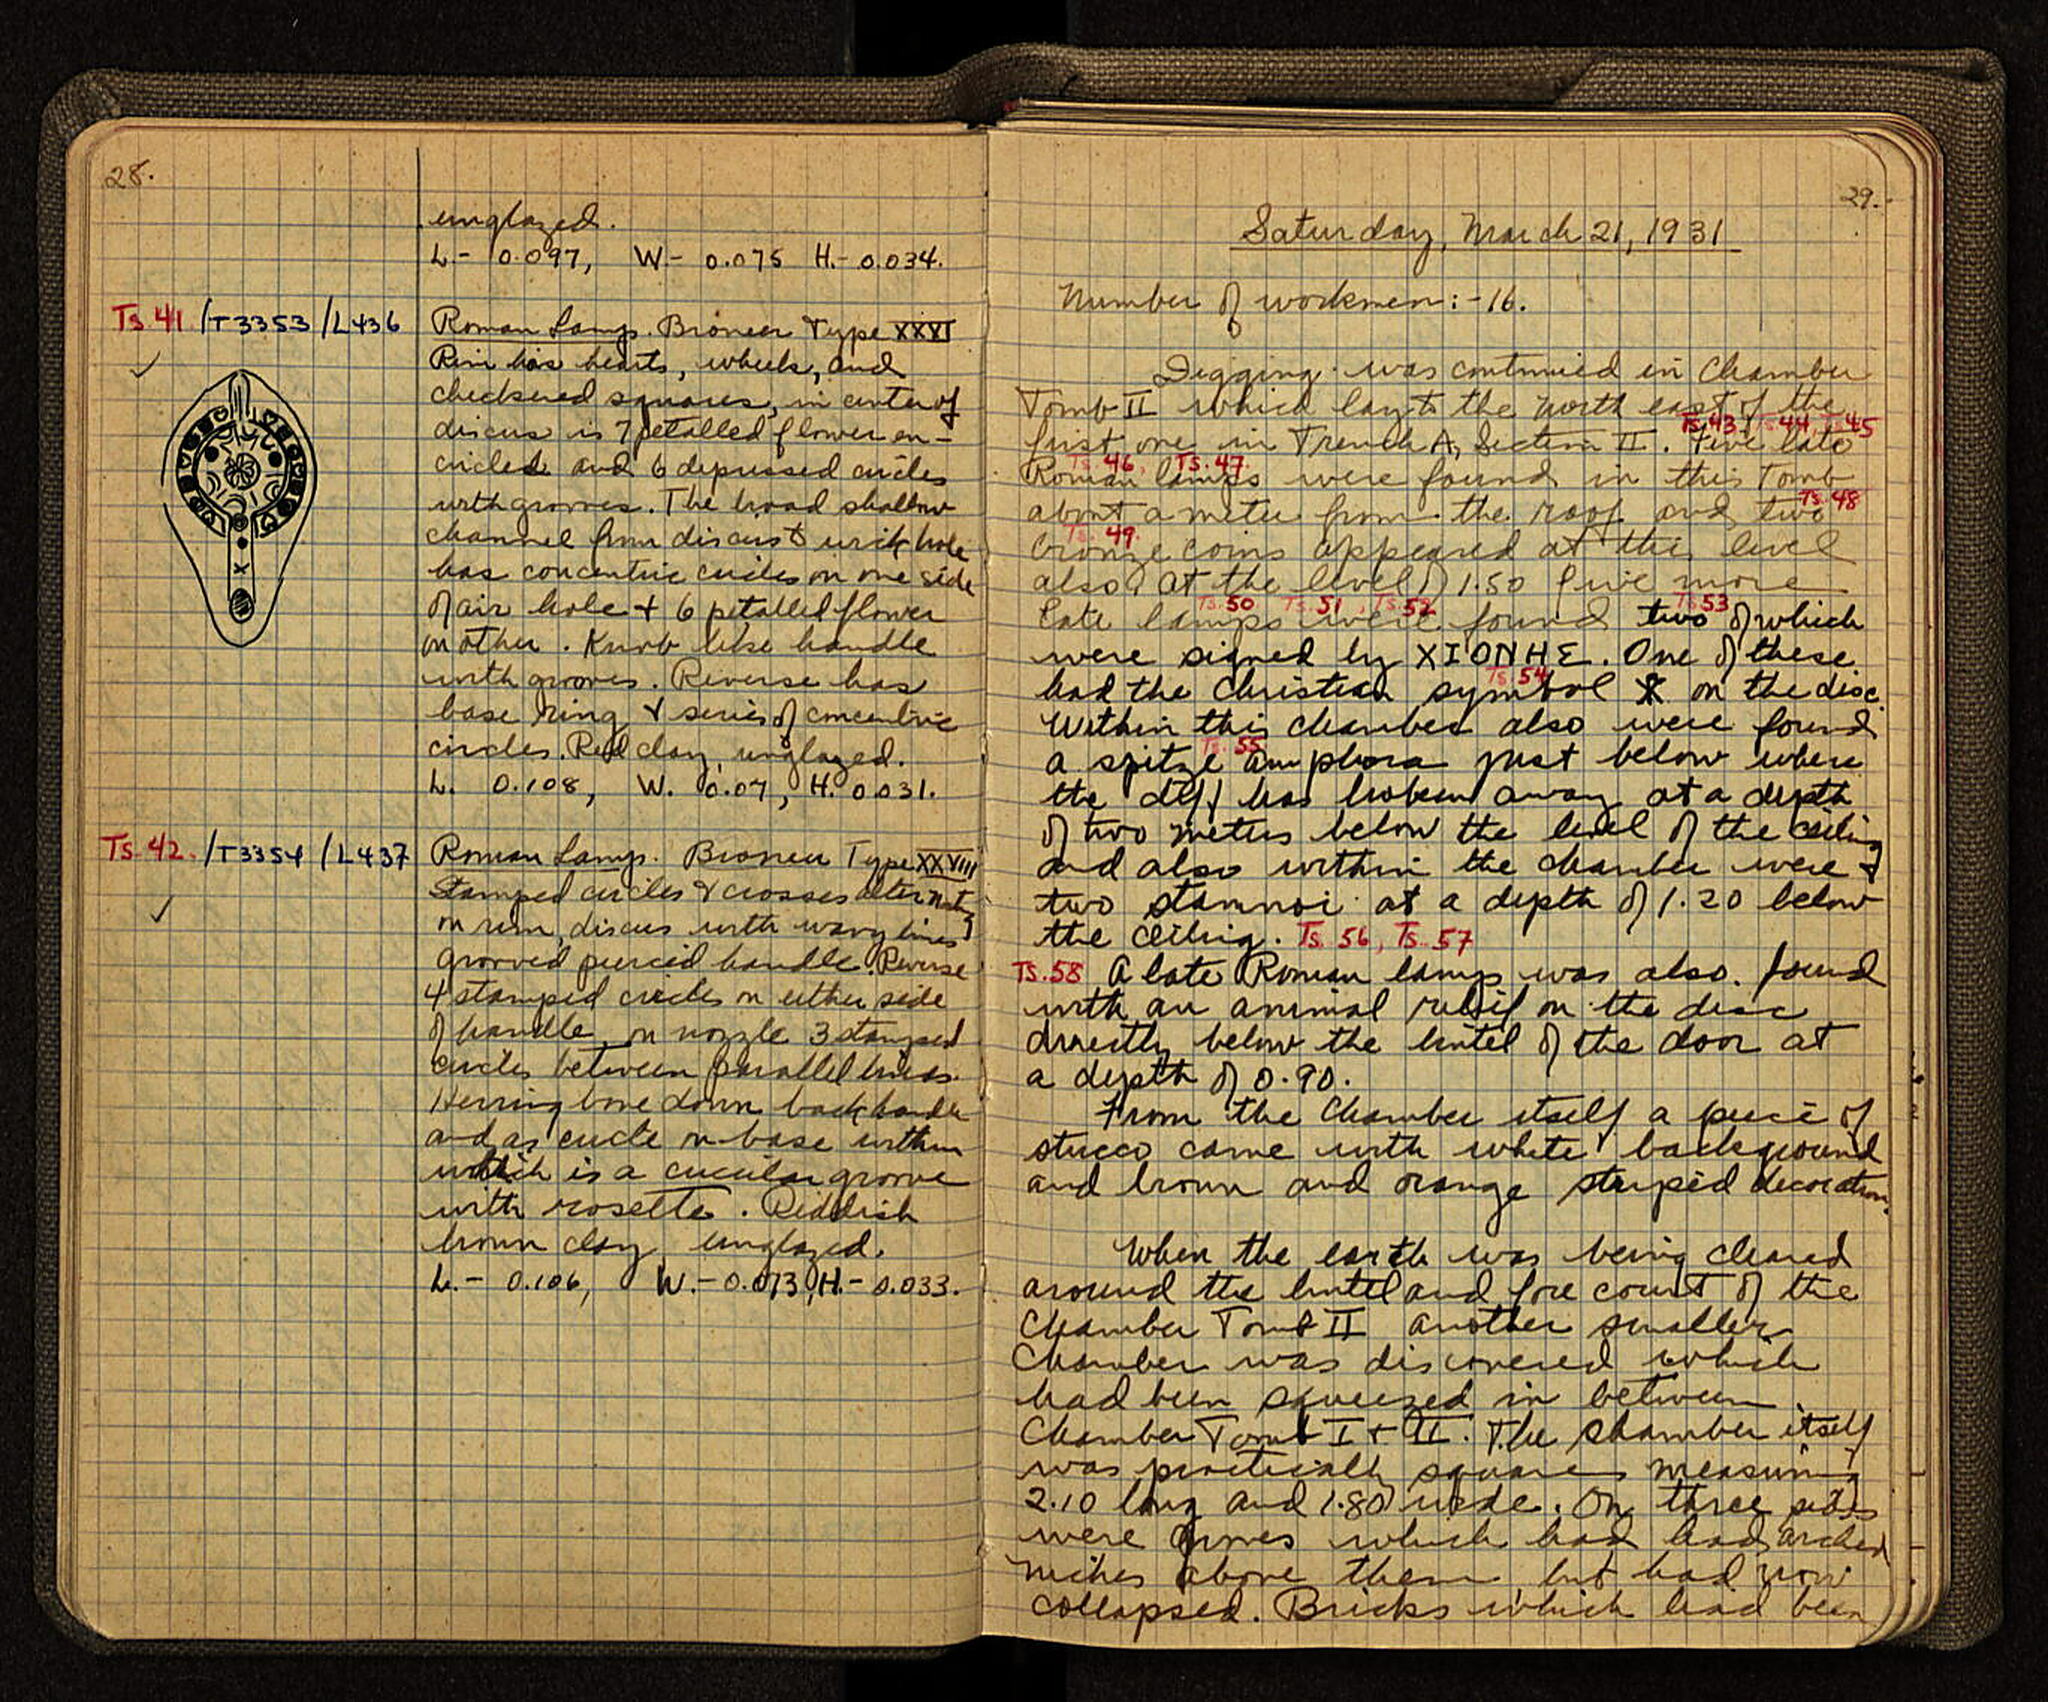 28.
unglazed.
L.- 0.097, W.- 0.075 H.- 0.034.
Ts 41 /T3353 /L436
Roman Lamp. Broneer Type XXXI
Rim has hearts, wheels, and
checkered squares, in center of
discus is 7 petalled flower en-
circled and 6 depressed circles
with grooves. The broad shallow
channel from discus to wick hole
has concentric circles on one side
of air hole + 6 petalled flower
on other. Knob like handle
with grooves. Reverse has
base ring & series of concentric
circles. Red clay, unglazed.
L. 0.108, W. 0.07, H. 0.031.
Ts. 42. /T3354 /L437
Roman Lamp. Broneer Type XXVIII
Stamped circles & crosses alternating
on rim, discus with wavy lines
grooved pierced handle. Reverse
4 stamped circles on either side
of handle, on nozzle 3 stamped
circles between parallel lines.
Herring bone down back handle
and as circle on base within
which is a circular groove
with rosette. Reddish
brown clay, unglazed.
L.- 0.106, W.- 0.073, H.- 0.033.
29.
Saturday, March 21, 1931
Number of workmen:- 16.
Digging was continued in Chamber
Tomb II which lay to the north east of the
Ts. 43, Ts 44, Ts 45
first one in Trench A, Section II. Five late
Ts. 46, Ts. 47.
Roman lamps were found in this Tomb
about a meter from the roof and two
Ts. 48
Ts. 49.
bronze coins appeared at this level
also. At the level of 1.50 five more
Ts. 50 Ts. 51, Ts. 52 Ts 53
late lamps were found two of which
were signed by ΧΙΟΝΗΣ. One of these
Ts 54
had the Christian symbol ☧ on the disc.
Within this chamber also were found
Ts. 55
a spitze amphora just below where
the cliff has broken away at a depth
of two meters below the level of the ceiling
and also within the chamber were
two stamnoi at a depth of 1.20 below
the ceiling. Ts. 56, Ts. 57
Ts. 58 A late Roman lamp was also found
with an animal relief on the disc
directly below the lintel of the door at
a depth of 0.90.
From the chamber itself a piece of
stucco came with white background
and brown and orange striped decoration.
When the earth was being cleared
around the lintel and fore court of the
Chamber Tomb II another smaller
chamber was discovered which
had been squeezed in between
Chamber Tomb I + II. The chamber itself
was practically square measuring
2.10 long and 1.80 wide. On three sides
were which had had arched
niches above them, but had now
collapsed. Bricks which had been